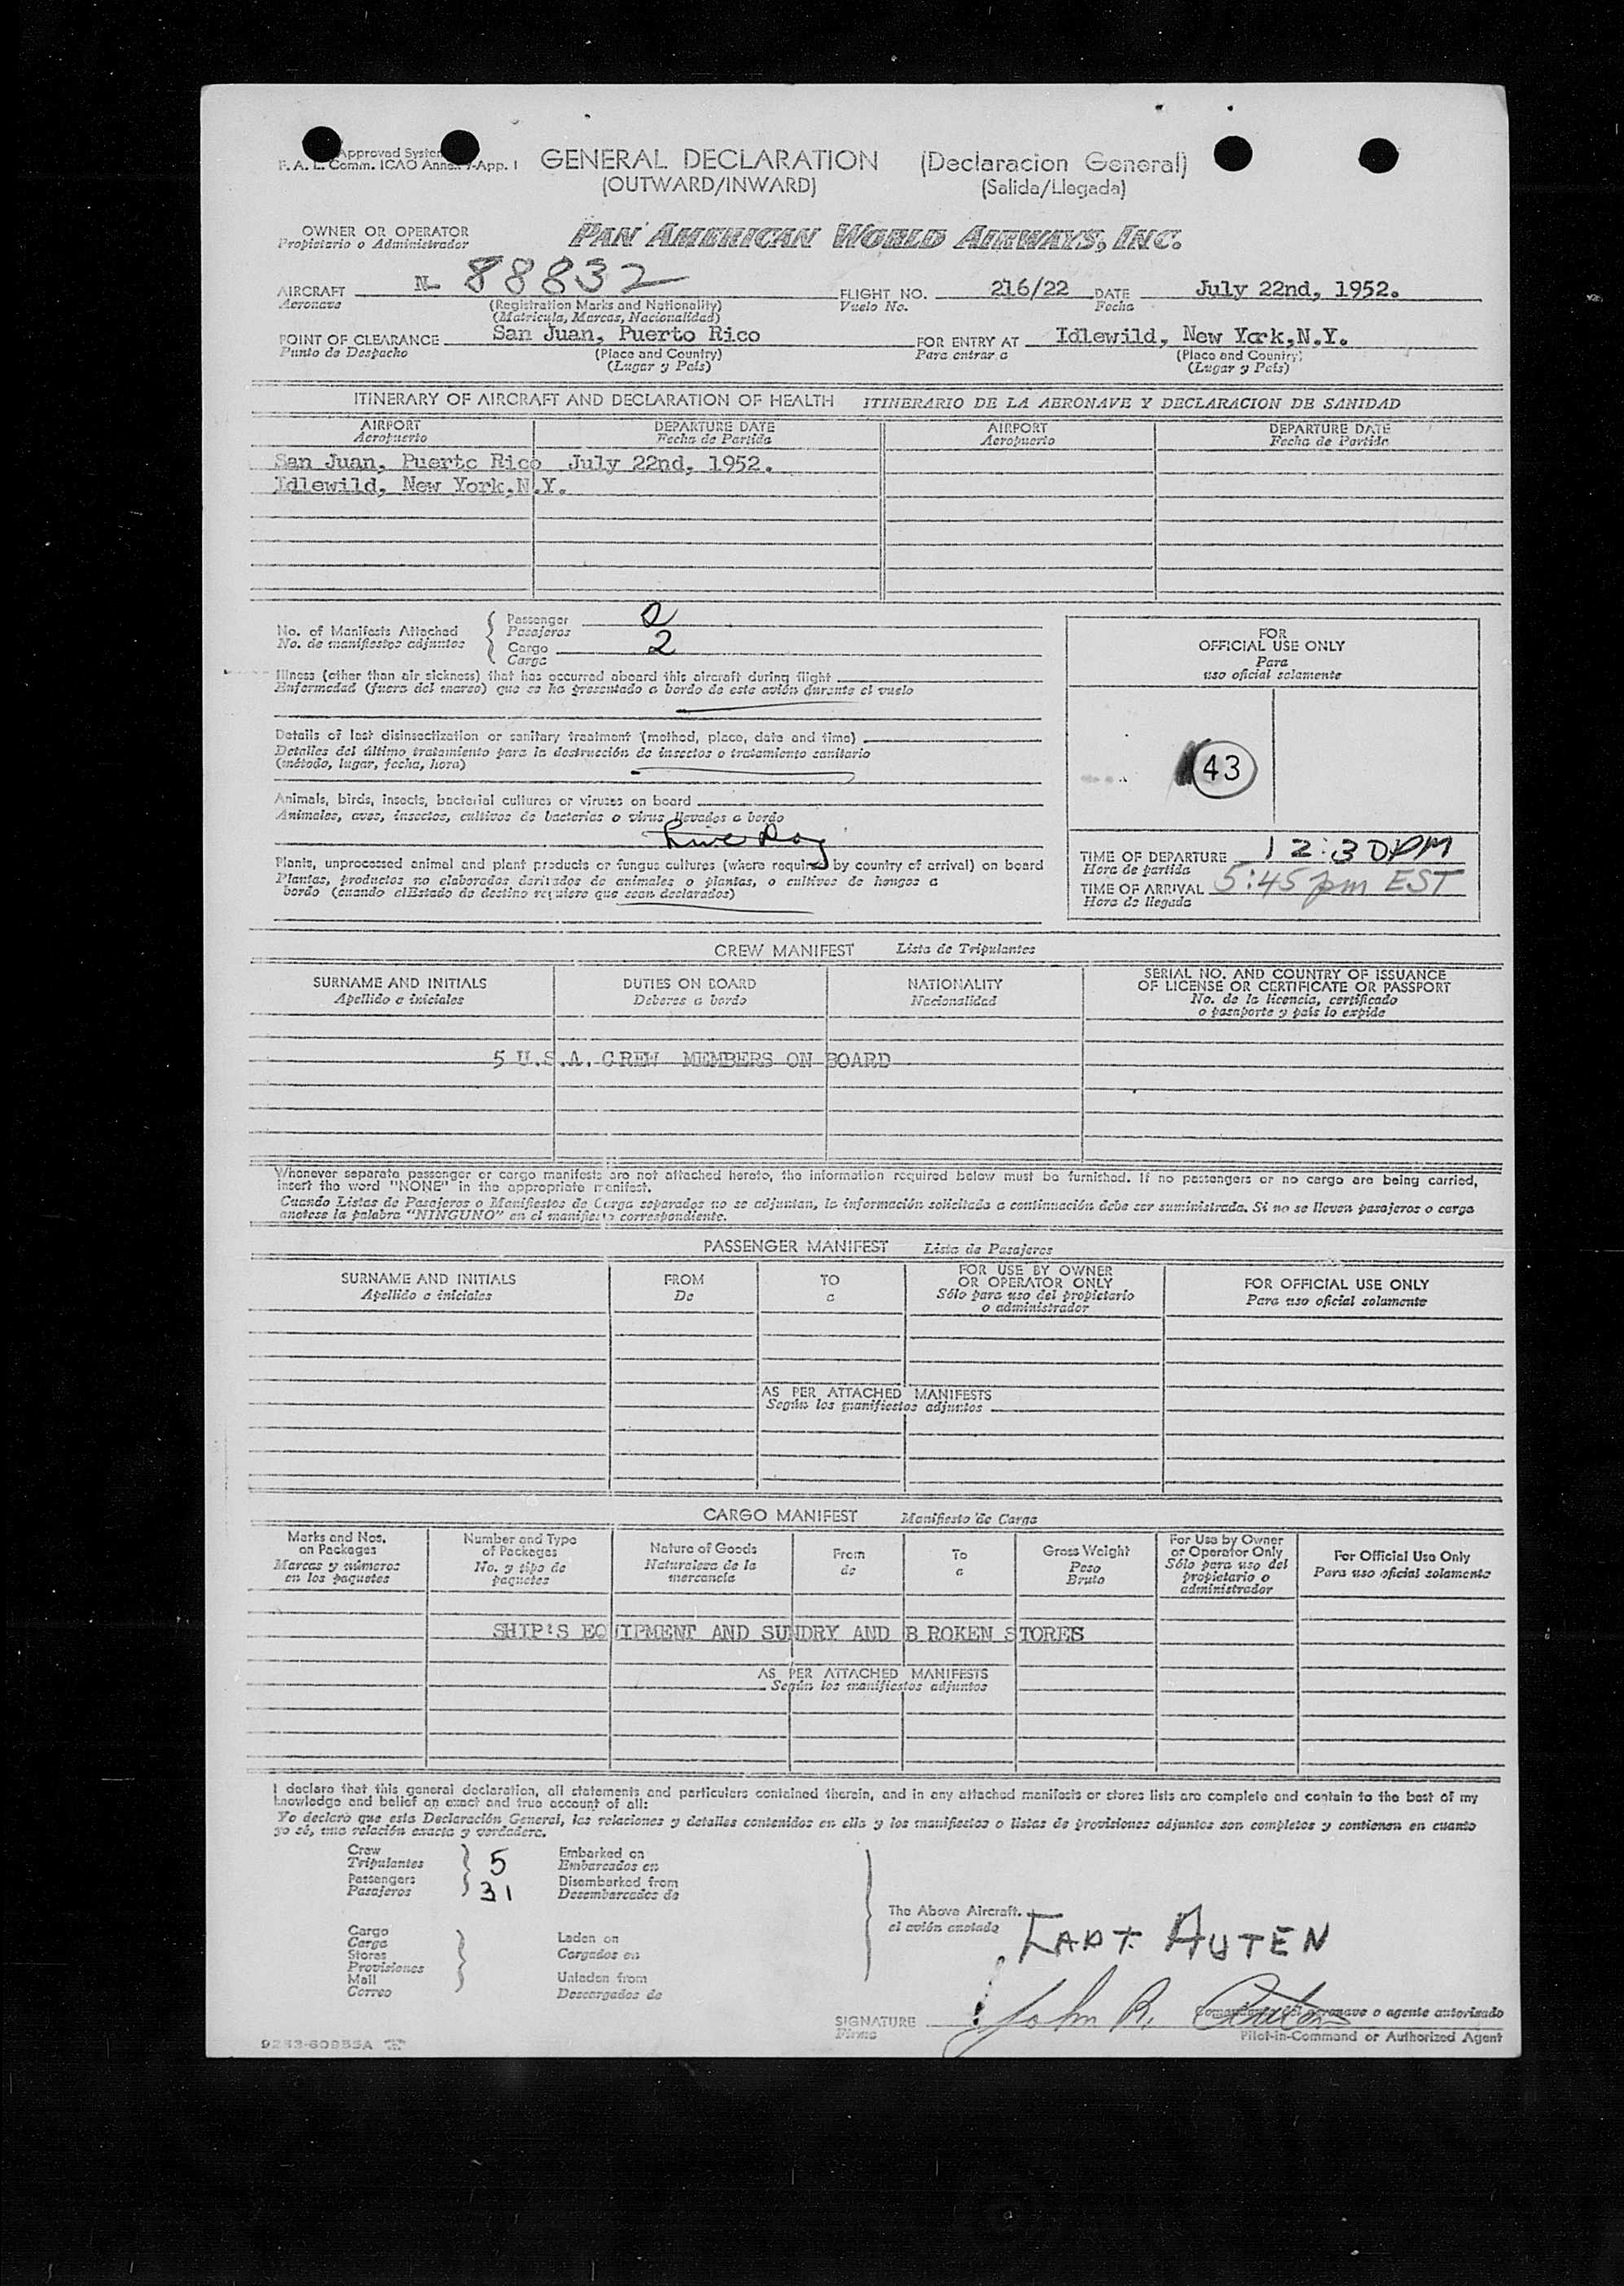 Approved System
F. A. L. Comm. ICAO Annex -App. I
GENERAL DECLARATION (Declaracion General)
(OUTWARD/INWARD) (Salida/Llegada)
OWNER OR OPERATOR PAN AMERICAN WORLD AIRWAYS, INC.
Propietario o Administrador
AIRCRAFT N- 88832 FLIGHT NO. 216/22 DATE July 22nd, 1952.
Aeronave (Registration Marks and Nationality) Vuelo No. Fecha
(Matricula, Marcas, Nacionalidad)
POINT OF CLEARANCE San Juan, Puerto Rico FOR ENTRY AT Idlewild, New York,N.Y.
Punto de Despacho (Place and Country) Para entrar a (Place and Country)
(Lugar y País) (Lugar y País)
ITINERARY OF AIRCRAFT AND DECLARATION OF HEALTH ITINERARIO DE LA AERONAVE Y DECLARACION DE SANIDAD
AIRPORT DEPARTURE DATE AIRPORT DEPARTURE DATE
Aeropuerto Fecha de Partida Aeropuerto Fecha de Partida
San Juan, Puerto Rico July 22nd, 1952.
Idlewild, New York,N.Y.
No. of Manifests Attached Passenger 2
No. de manifiestos adjuntos Pasajeros
Cargo 2
Carga
FOR
OFFICIAL USE ONLY
Para
uso oficial solamente
Illness (other than air sickness) that has occurred aboard this aircraft during flight
Enfermedad (fuera del mareo) que se ha presentado a bordo de este avión durante el vuelo
Details of last disinsectization or sanitary treatment (method, place, date and time)
Detalles del último tratamiento para la destrucción de insectos o tratamiento sanitario
(método, lugar, fecha, hora)
43
Animals, birds, insects, bacterial cultures or viruses on board
Animales, aves, insectos, cultivos de bacterias o virus llevados a bordo
Live Dog
Plants, unprocessed animal and plant products or fungus cultures (where required by country of arrival) on board
Plantas, productos no elaborados derivados de animales o plantas, o cultivos de hongos a
bordo (cuando el Estado de destino requiere que sean declarados)
TIME OF DEPARTURE 12:30PM
Hora de partida
TIME OF ARRIVAL 5:45 pm EST
Hora de llegada
CREW MANIFEST Lista de Tripulantes
SURNAME AND INITIALS DUTIES ON BOARD NATIONALITY SERIAL NO. AND COUNTRY OF ISSUANCE
OF LICENSE OR CERTIFICATE OR PASSPORT
Apellido e iniciales Deberes a bordo Nacionalidad No. de la licencia, certificado
o pasaporte y país lo expide
5 U.S.A. CREW MEMBERS ON BOARD
Whenever separate passenger or cargo manifests are not attached hereto, the information required below must be furnished. If no passengers or no cargo are being carried,
insert the word "NONE" in the appropriate manifest.
Cuando Listas de Pasajeros o Manifiestos de Carga separados no se adjuntan, la información solicitada a continuación debe ser suministrada. Si no se lleven pasajeros o carga
anotese la palabra "NINGUNO" en el manifiesto correspondiente.
PASSENGER MANIFEST Lista de Pasajeros
SURNAME AND INITIALS FROM TO FOR USE BY OWNER
OR OPERATOR ONLY FOR OFFICIAL USE ONLY
Apellido e iniciales De a Sólo para uso del propietario
o administrador Para uso oficial solamente
AS PER ATTACHED MANIFESTS
Según los manifiestos adjuntos
CARGO MANIFEST Manifiesto de Carga
Marks and Nos.
on Packages
Marcas y números
en los paquetes
Number and Type
of Packages
No. y tipo de
paquetes
Nature of Goods
Naturaleza de la
mercancia
From
de
To
a
Gross Weight
Peso
Bruto
For Use by Owner
or Operator Only
Sólo para uso del
propietario o
administrador
For Official Use Only
Para uso oficial solamente
SHIP'S EQUIPMENT AND SUNDRY AND B ROKEN STORES
AS PER ATTACHED MANIFESTS
Según los manifiestos adjuntos
I declare that this general declaration, all statements and particulars contained therein, and in any attached manifests or stores lists are complete and contain to the best of my
knowledge and belief an exact and true account of all:
Yo declaro que esta Declaración General, las relaciones y detalles contenidos en ella y los manifiestos o listas de provisiones adjuntos son completos y contienen en cuanto
yo sé, una relación exacta y verdadera.
Crew 5 Embarked on
Tripulantes Embarcados en
Passengers 31 Disembarked from
Pasajeros Desembarcados de
Cargo
Carga
Stores
Provisiones
Mail
Correo
Laden on
Cargados en
Unladen from
Descargados de
The Above Aircraft.
el avión anotado
CAPT. AUTEN
SIGNATURE John R. Auten
Firma
Comandante del aeronave o agente autorizado
Pilot-in-Command or Authorized Agent